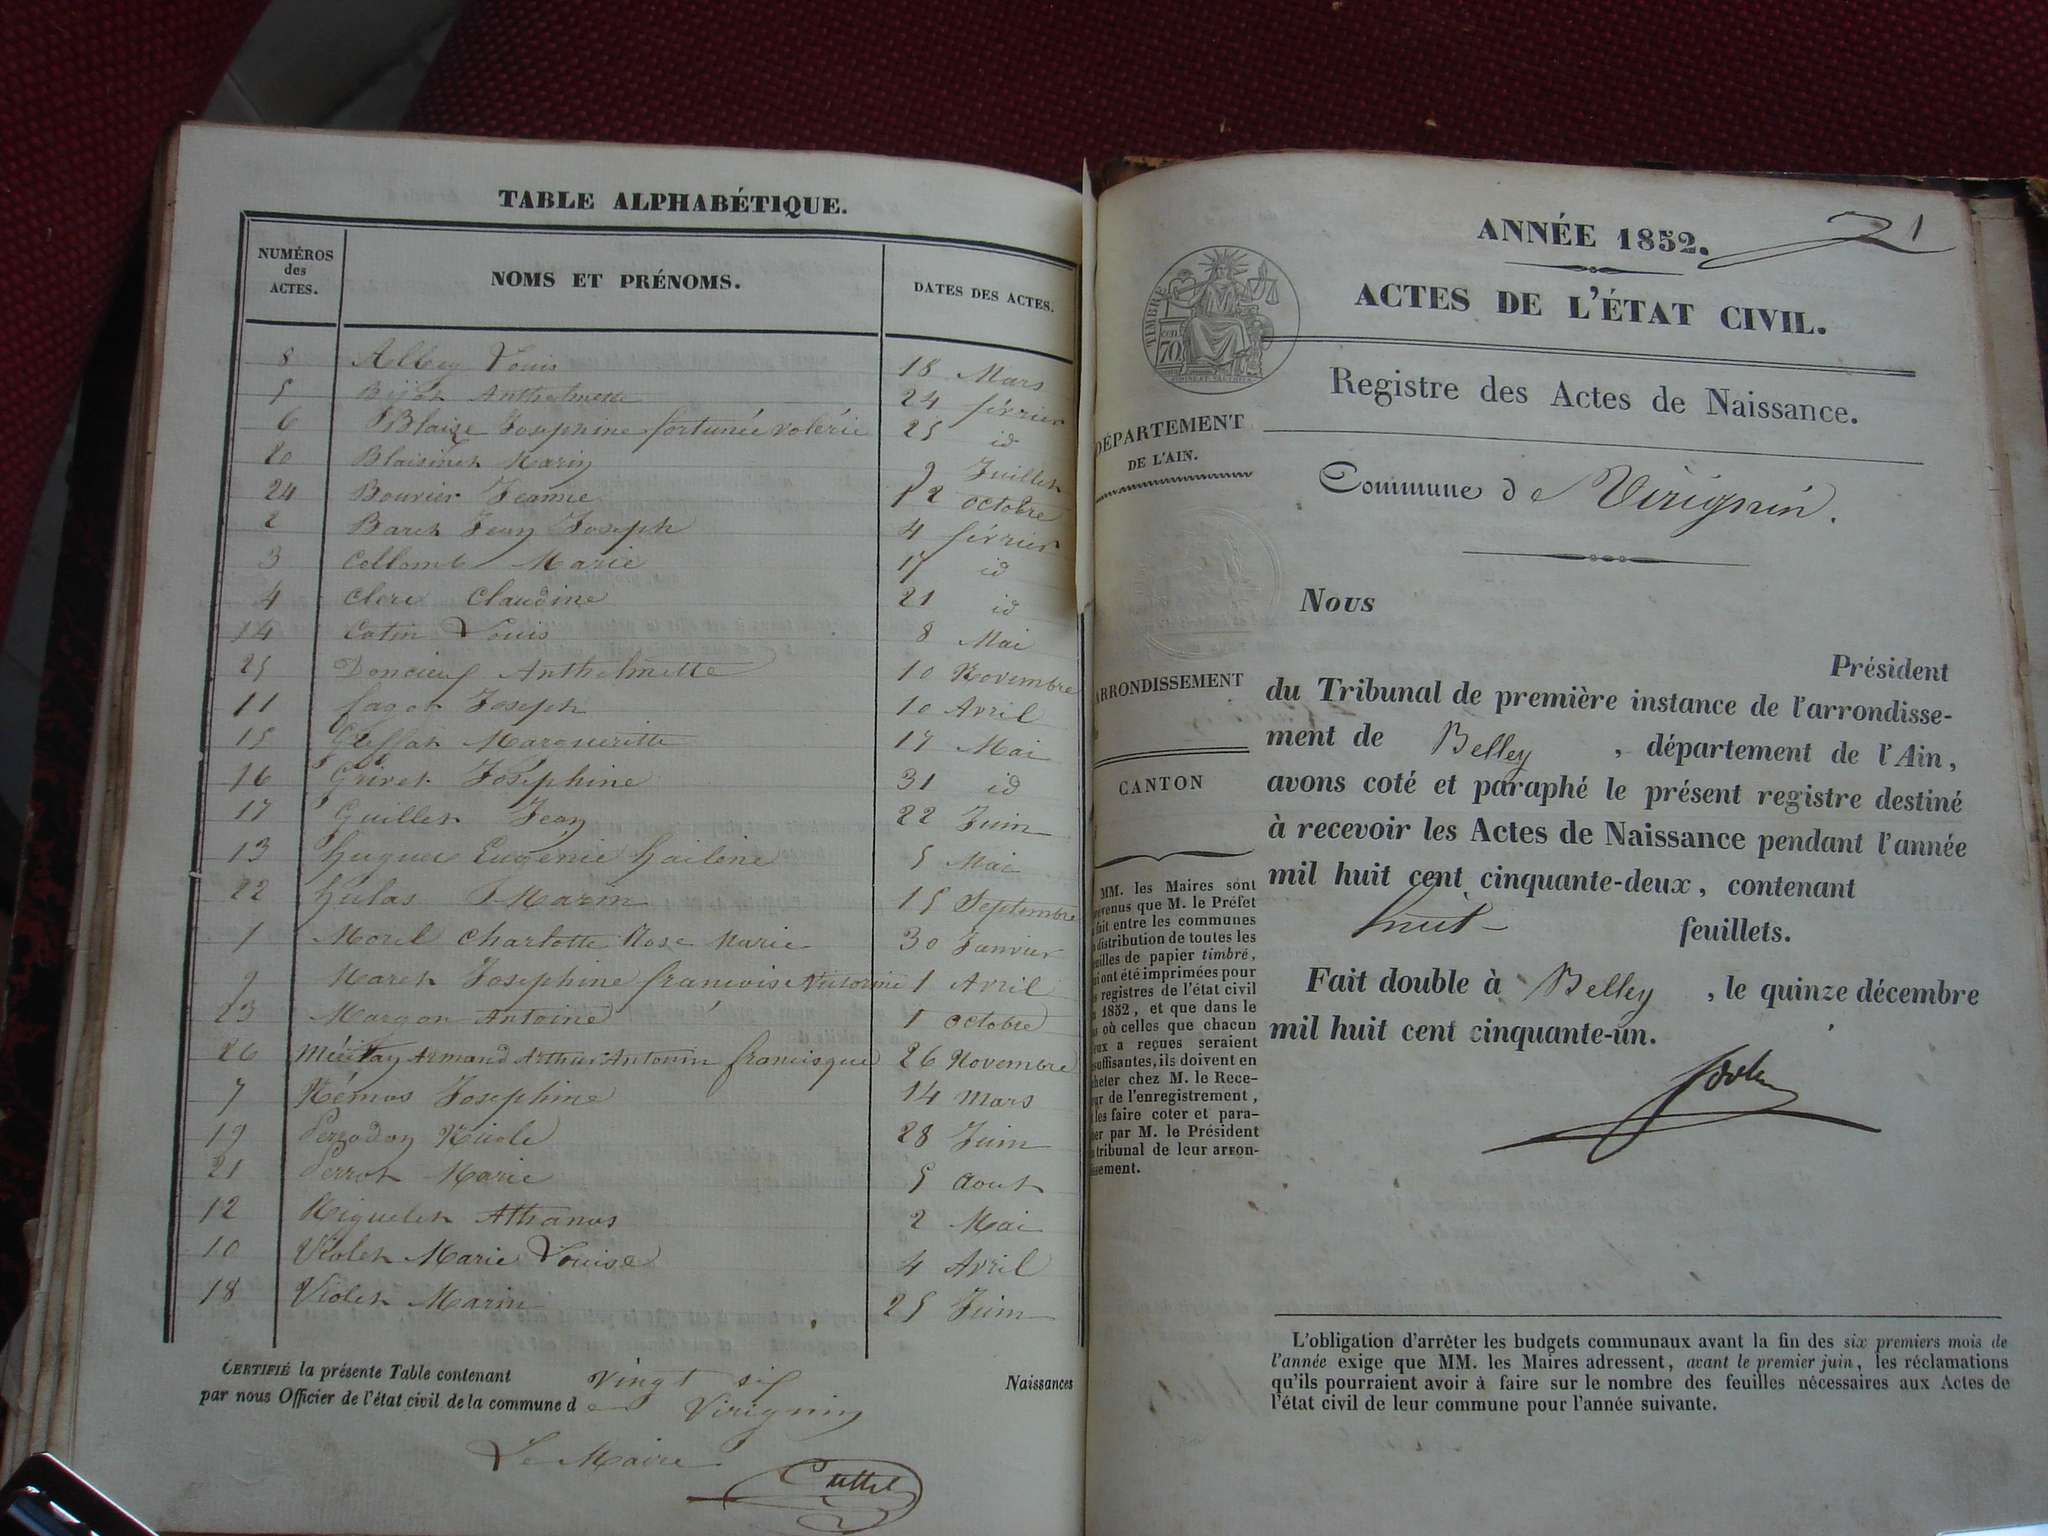 TABLE ALPHABÉTIQUE.
NUMÉROS des ACTES.
NOMS ET PRÉNOMS.
DATES DES ACTES.
8 Albey Louis 18 Mars
5 Anthelmette 24 février
6 Blaize Josephine fortunée valérie 25 id
20 Blaisinet Marin 9 Juillet
24 Bouvier Jeanne 12 octobre
2 Baret Jean Joseph 4 février
3 Collomb Marie 17 id
4 Clerc Claudine 21 id
14 Catin Louis 8 Mai
25 Doncieux Anthelmette 10 Novembre
11 fagot Joseph 10 Avril
15 Margueritte 17 Mai
16 Grivet Joséphine 31 id
17 Guillet Jean 22 Juin
13 hugues Eugenie 5 Mai
22 hulas Marin 15 Septembre
1 Morel Charlotte Rose Marie 30 Janvier
9 Maret Josephine francoise Victorine 1 Avril
23 Margon Antoine 1 octobre
26 Armand Arthur Antonin francisque 26 Novembre
7 Némos Josephine 14 Mars
19 Perrodon Nicole 28 Juin
21 Perrot Marie 5 Aout
12 Riguelet Athanas 2 Mai
10 Violet Marie Louise 4 Avril
18 Violet Marin 25 Juin
CERTIFIÉ la présente Table contenant vingt six Naissances
par nous Officier de l'état civil de la commune de Virignin
Le Maire
ANNÉE 1852. 1
ACTES DE L'ÉTAT CIVIL.
TIMBRE
70
Registre des Actes de Naissance.
DÉPARTEMENT
DE L'AIN.
Commune de Virignin.
Nous
Président
ARRONDISSEMENT
du Tribunal de première instance de l'arrondisse-
ment de Belley, département de l'Ain,
CANTON
avons coté et paraphé le présent registre destiné
à recevoir les Actes de Naissance pendant l'année
mil huit cent cinquante-deux, contenant
huit feuillets.
Fait double à Belley, le quinze décembre
mil huit cent cinquante-un.
MM. les Maires sont
évenus que M. le Préfet
fait entre les communes
distribution de toutes les
uilles de papier timbré,
ui ont été imprimées pour
s registres de l'état civil
1852, et que dans le
s où celles que chacun
eux a reçues seraient
suffisantes, ils doivent en
heter chez M. le Rece-
ur de l'enregistrement,
les faire coter et para-
her par M. le Président
tribunal de leur arron-
ssement.
L'obligation d'arrêter les budgets communaux avant la fin des six premiers mois de
l'année exige que MM. les Maires adressent, avant le premier juin, les réclamations
qu'ils pourraient avoir à faire sur le nombre des feuilles nécessaires aux Actes de
l'état civil de leur commune pour l'année suivante.